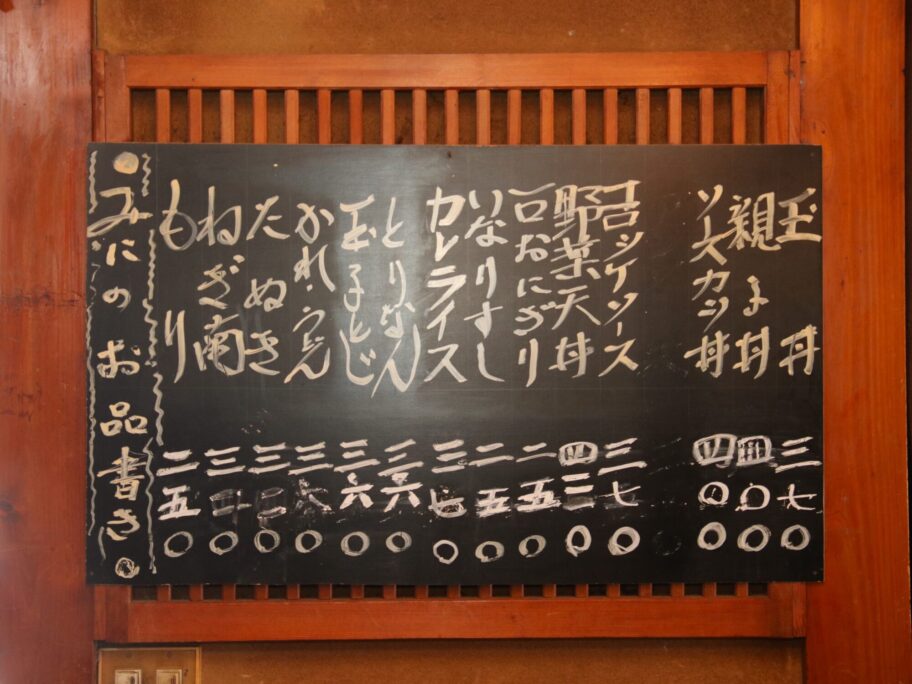 みにのお品書き
もり 二五〇
ねぎ南 三〇
たぬき 三〇
かれーうどん 三六〇
玉子とじ 三六〇
とりなん 三六〇
カレライス 三七〇
いなりすし 二五〇
一口おにぎり 二五〇
野菜天丼 四三〇
コロッケソース 三七〇
ソースカツ丼 四〇〇
親子丼 四〇〇
玉丼 三七〇